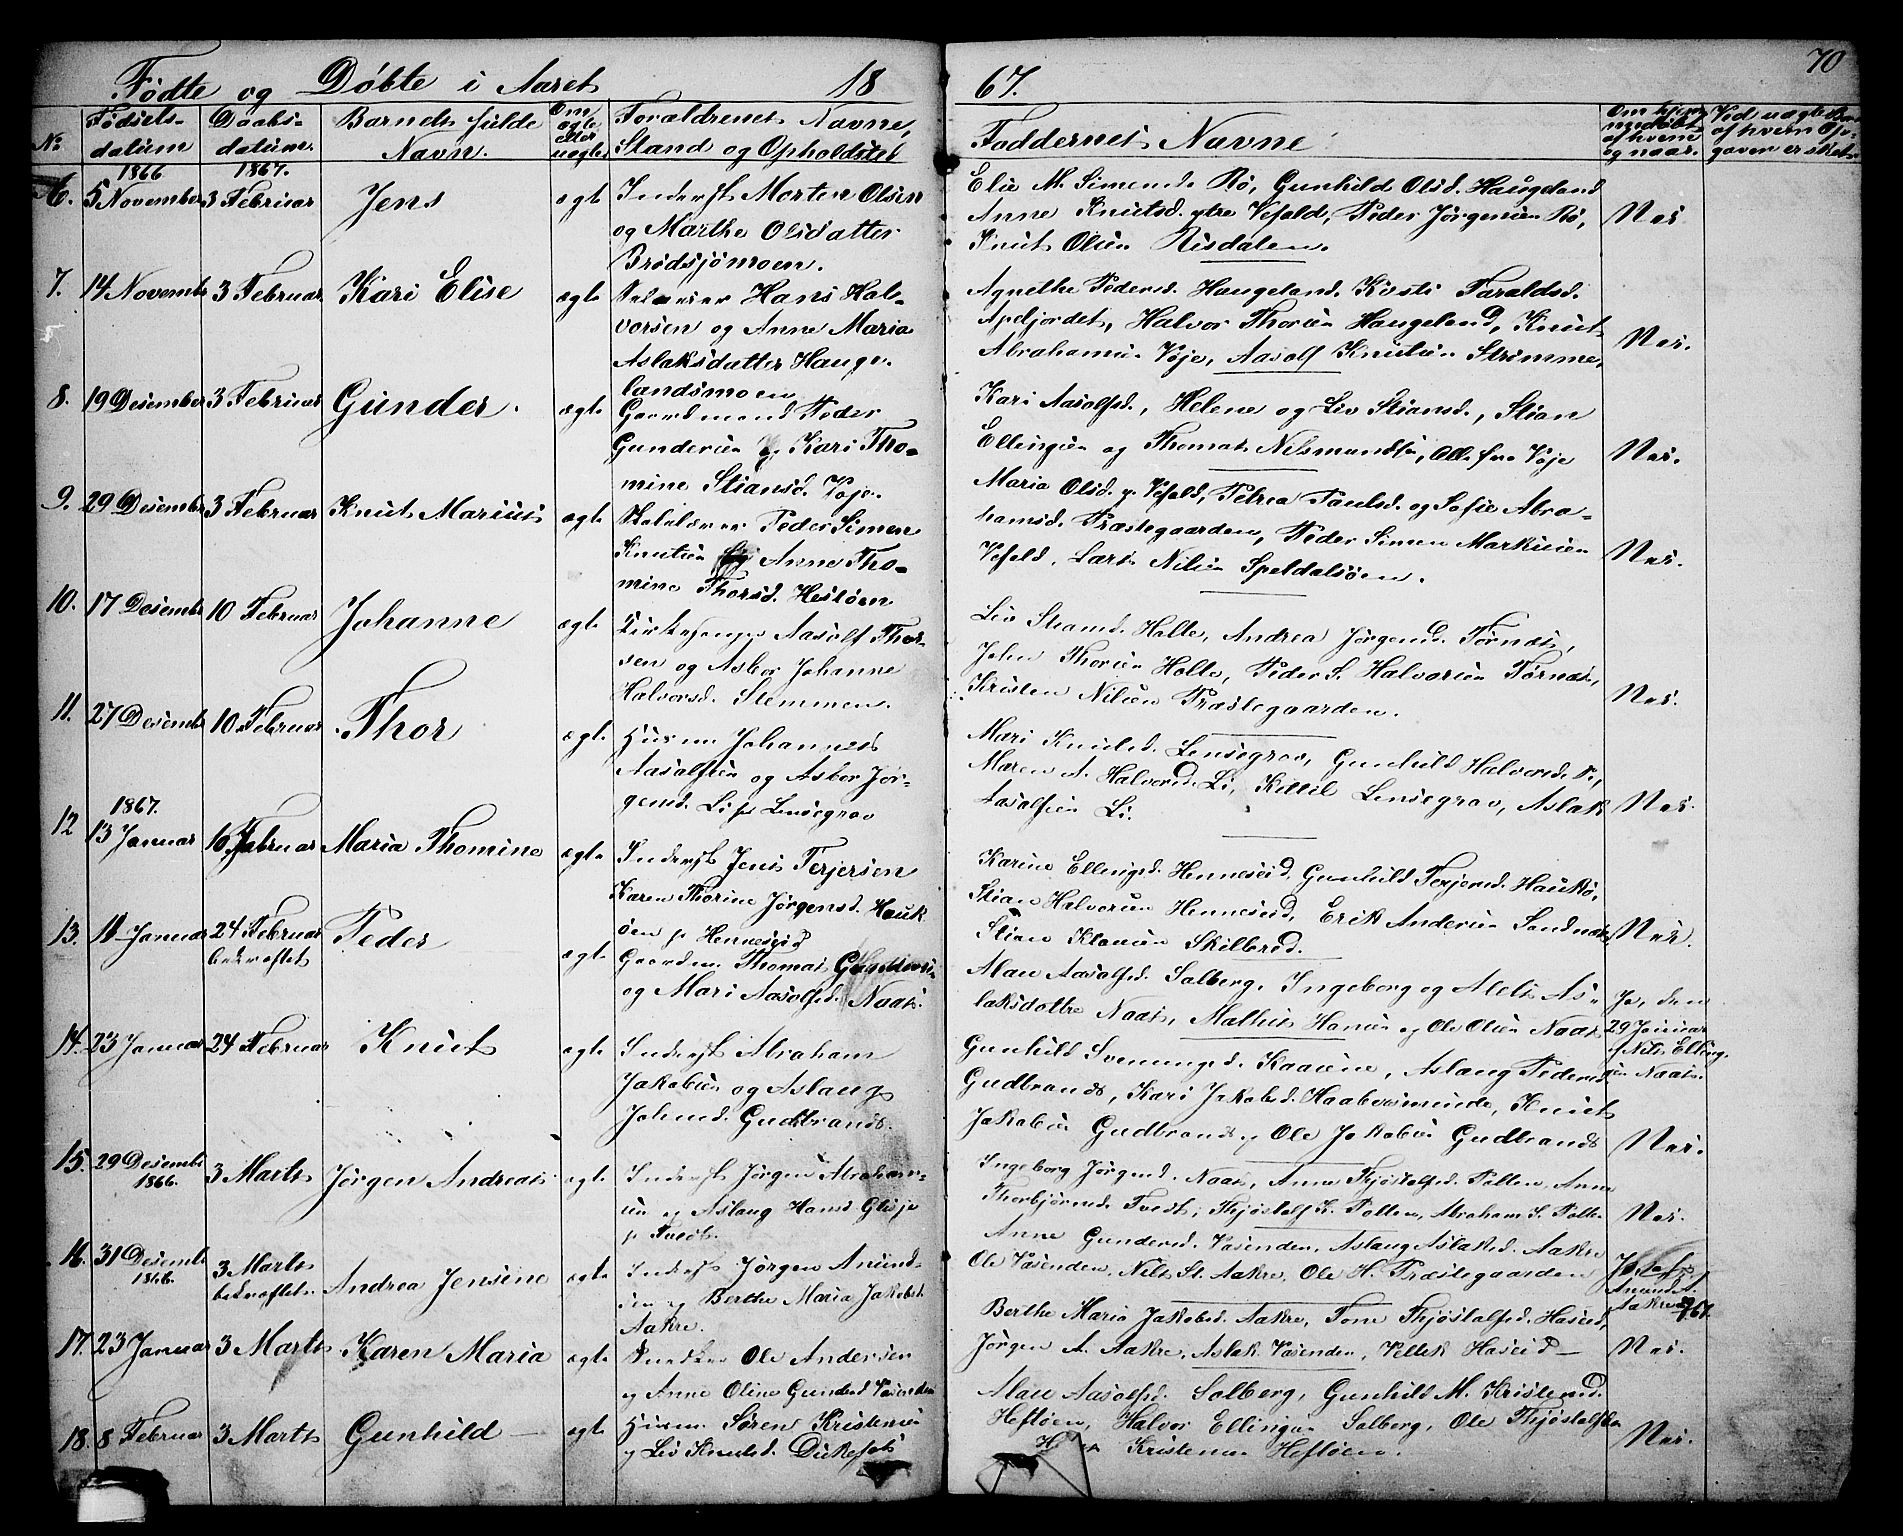 70
Fødte og Døbte i Aaret 18 67.
No
Fødsels-
datum
Daabs-
datum.
Barnets fulde
Navn.
Om
ægte
eller
uægte
Forældrenes Navne,
Stand og Opholdsted
Faddernes Navne
1866
1867.
6. 5 November 3 Februar Jens ægte Inderst Morten Olsen
og Marthe Olsdatter
Brødsjømoen.
Elie M. Simensd. Bø, Gunhild Olsd. Haugeland
Anne Knutsd. ytre Vefald, Peder Jørgensen Bø,
Knut Olsen Risdalen.
Nei
7. 14 Novembr 3 Februar Kari Elise ægte Hans Hal-
vorsen og Anne Maria
Aslaksdatter Hauge-
landsmoen
Agnethe Pedersd. Haugeland, Kirsti Taraldsd.
Apeljordet, Halvor Thorsen Haugeland, Knut
Abrahamsen Vøje, Aasolf Knutsen Strømme,
Nei.
8. 19 Desember 3 Februar Gunder. ægte Gaardmand Peder
Gundersen og Kari Tho-
mine Stiansd. Vøje.
Kari Aasolfsd., Helene og Liv Stiansd., Stian
Ellingsen og Thomas Nilsmundsen, Alle fra Vøje
Nei.
9. 29 Desember 3 Februar Knut Marius ægte Skolelærer Peder Simen
Knutsen og Anne Tho-
mine Thorsd. Hestøen
Maria Olsd. y. Vefald, Petrea Paulsd. og Sofie Abra-
hamsd. Præstegaarden, Peder Simen Markusen
Vefald, Lars Nilsen Speldalsøen.
Nei.
10. 17 Desembr 10 Februar Johanne ægte Kirkesanger Aasolf Thor-
sen og Asbor Johanne
Halvorsd. Stemmen.
Liv Stiansd. Holte, Andrea Jørgensd. Tørnæs,
John Thorsen Holte, Peder S. Halvorsen Tørnæs,
Kristen Nilsen Præstegaarden.
Nei.
11. 27 Desembr 10 Februar Thor ægte Husm. Johannes
Aasolfsen og Asbor Jør-
gensd. Li p. Lensegrav
Mari Knutsd. Lensegrav, Gunhild Halvorsd. P.,
Maren A. Halvorsd. Li, Kittil Lensegrav, Aslak
Aasolfsen Li.
Nei.
1867.
12 13 Januar 10 Februar Maria Thomine ægte Inderst Jens Terjersen
Karen Thorine Jørgensd. Hauk
øen p. Henneseid
Karine Ellingsd. Henneseid, Gunhild Terjersd. Haukø,
Stian Halvorsen Henneseid, Erik Andersen Sandnæs,
Stian Klausen Skilbred.
Nei.
13. 11 Januar 24 Februar
bekræftet
Peder ægte Gaardm. Thomas Gundersen
og Mari Aasolfsd. Naas.
Alau Aasolfsd. Solberg, Ingeborg og Alet As-
laksdøttre Naas, Mathis Hansen og Ole Olsen Naas
Ja, den
29 Januar
af Nils Elling-
sen Naas.
14. 23 Januar 24 Februar Knut ægte Inderst Abraham
Jakobsen og Aslaug
Johnsd. Gudbrands.
Gunhild Svenungsd. Kaasene, Aslaug Pedersd.
Gudbrands, Kari Jakobsd. Haabesmunde, Knut
Jakobsen Gudbrands og Ole Jakobsen Gudbrands
Nei.
15. 29 Desembr
1866.
3 Marts Jørgen Andreas ægte Inderst Jørgen Abraham-
sen og Aslaug Hansd. Glisje
p. Tvedt.
Ingeborg Jørgensd. Naas, Anne Thjøstolfsd. Polten, Anne
Thorbjørnsd. Tvedt, Thjøstolf K. Polten, Abraham S. Polten
Nei.
16. 31 Desembr
1866.
3 Marts
bekræftet.
Andrea Jensine ægte Inderst Jørgen Anund-
sen og Berthe Maria Jakobsd.
Aakre.
Anne Gundersd. Vasenden, Aslaug Aslaksd. Aakre
Ole Vasenden, Nils St. Aakre, Ole H. Præstegaarden
Anund A.
Aakre
17. 23 Januar 3 Marts Karen Maria ægte Snedker Ole Andersen
og Anne Oline Gundersd. Vasenden
Berthe Maria Jakobsd. Aakre, Tone Thjøstolfsd. Haseid,
Jørgen A. Aakre, Aslak Vasenden, Vellek Haseid —
Nei.
18. 8 Februar 3 Marts Gunhild — ægte Husm. Søren Kristensen
og Liv Knutsd. Dukefos
Alau Aasolfsd. Solberg, Gunhild M. Kristensd.
Heftøen, Halvor Ellingsen Solberg, Ole Thjøstolfsen
Kristensen Heftøen.
Nei.